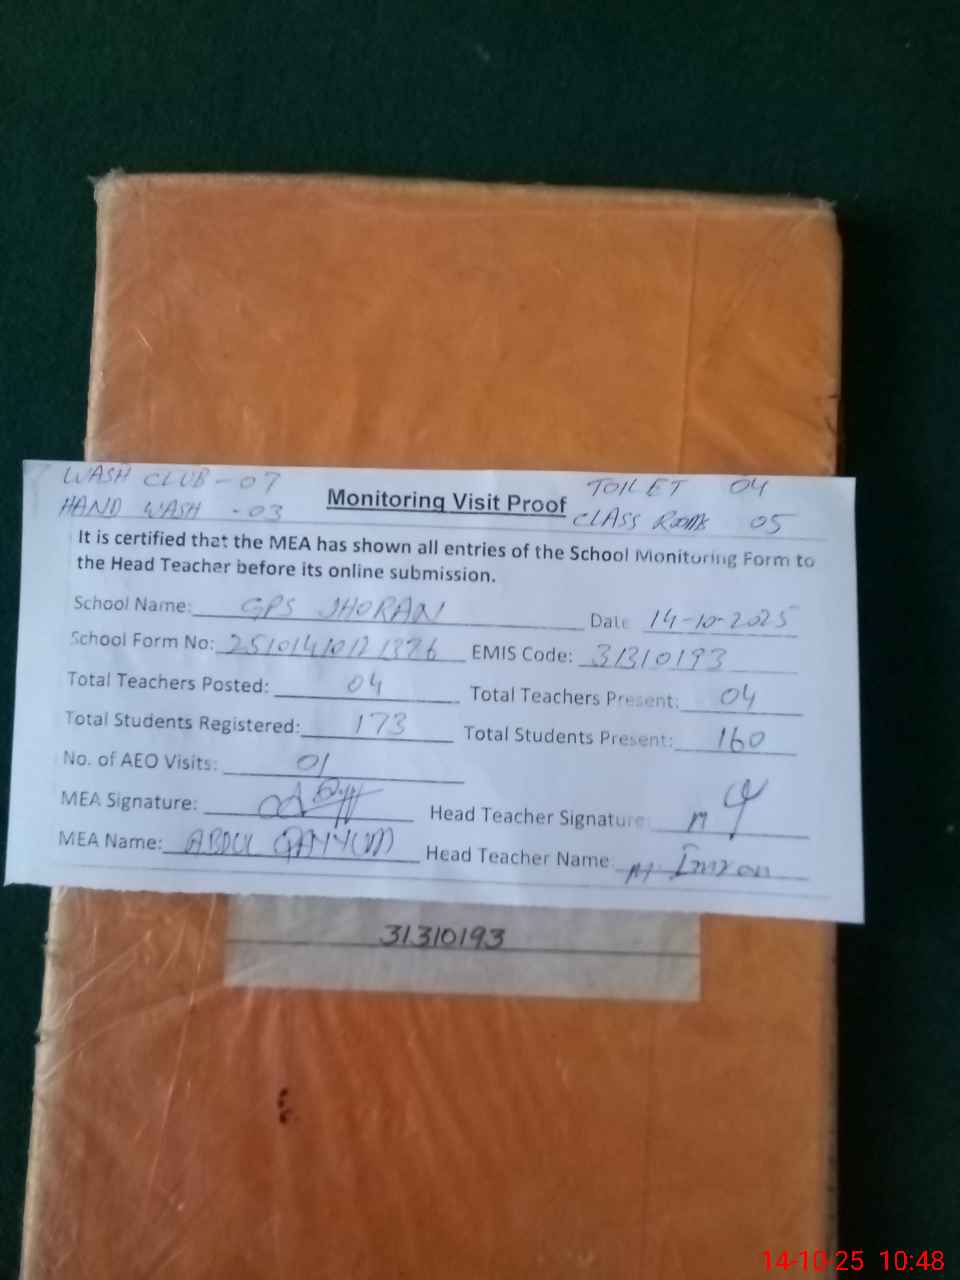 WASH CLUB - 07
TOILET 04
HAND WASH - 03
Monitoring Visit Proof
CLASS ROOMS 05
It is certified that the MEA has shown all entries of the School Monitoring Form to
the Head Teacher before its online submission.
School Name: GPS JHORAN Date 14-10-2025
School Form No: EMIS Code: 31310193
Total Teachers Posted: 04 Total Teachers Present: 04
Total Students Registered: 173 Total Students Present: 160
No. of AEO Visits: 01
MEA Signature: Head Teacher Signature:
MEA Name: ABDUL QAYYUM Head Teacher Name: M. Imran
31310193
14-10-25 10:48